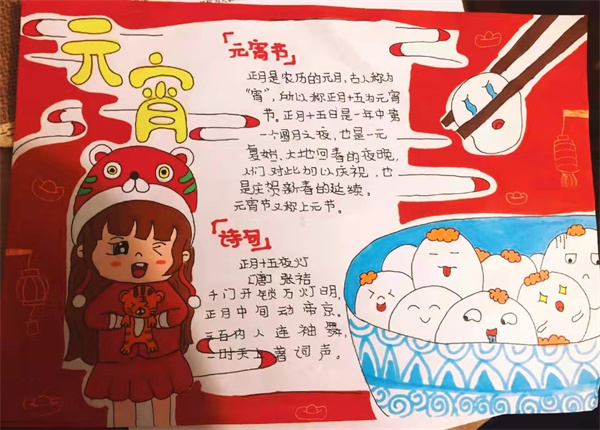 元宵
「元宵节」
正月是农历的元月,古人称为
“宵”,所以称正月十五为元宵
节。正月十五日是一年中第
一个圆月之夜,也是一元
复始,大地回春的夜晚,
人们对此加以庆祝,也
是庆贺新春的延续。
元宵节又称上元节。
「诗句」
正月十五夜灯
[唐] 张祜
千门开锁万灯明,
正月中间动帝京。
三百内人连袖舞,
一时天上著词声。